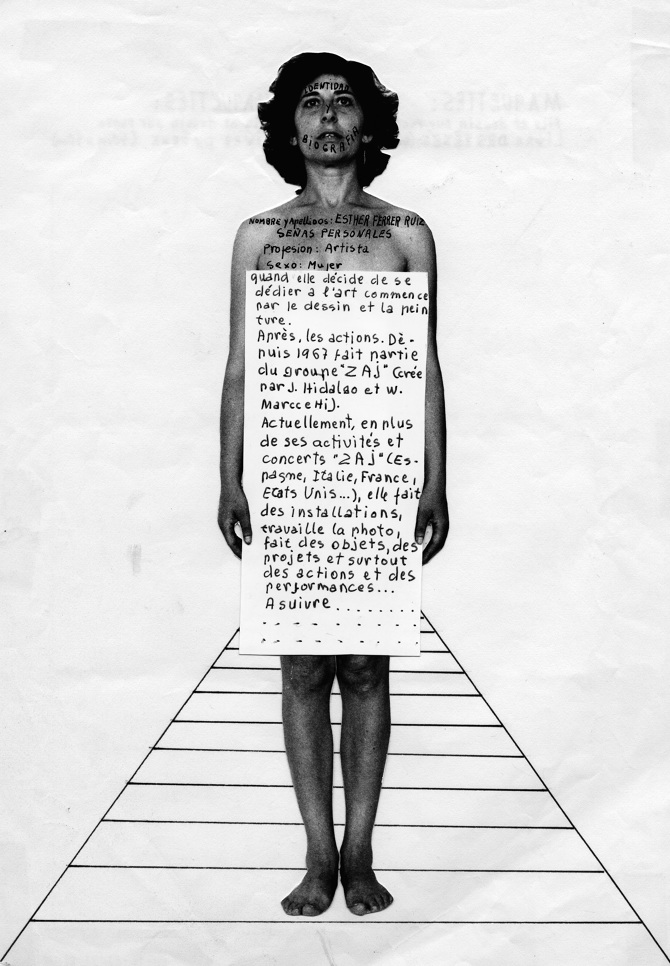 IDENTIDAD
Y
BIOGRAFIA
NOMBRE y Apellidos: ESTHER FERRER RUIZ
SEÑAS PERSONALES
Profesion: Artista
Sexo: Mujer
quand elle décide de se
dédier a l'art commence
par le dessin et la pein
ture.
Après, les actions. Dè-
puis 1967 fait partie
du groupe "ZAj" (crée
par J. Hidalgo et W.
MarcceHi).
Actuellement, en plus
de ses activités et
concerts "ZAj" (Es-
pagne, Italie, France,
Etats Unis...), elle fait
des installations,
travaille la photo,
fait des objets, des
projets et surtout
des actions et des
performances...
A suivre........
MAQUETTES: